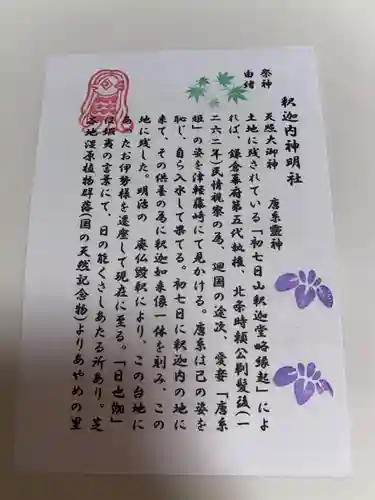 釈迦内神明社
祭神 天照大御神 唐糸霊神
由緒
土地に残されている「初七日山釈迦堂略縁起」によ
れば、鎌倉幕府第五代執権、北条時頼公剃髪後(一
二六二年)民情視察の為、廻国の途次、愛妾「唐糸
姫」の姿を津軽藤崎にて見かける。唐糸は己の姿を
恥じ、自ら入水して果てる。初七日に釈迦内の地に
来て、その供養の為に釈迦如来像一体を刻み、この
地に残した。明治の 廃仏毀釈により、この台地に
あったお伊勢様を遷座して現在に至る。「日也伽」
は蝦夷の言葉にて、日の能くさしあたる所あり。芝
谷地湿原植物群落(国の天然記念物)よりあやめの里